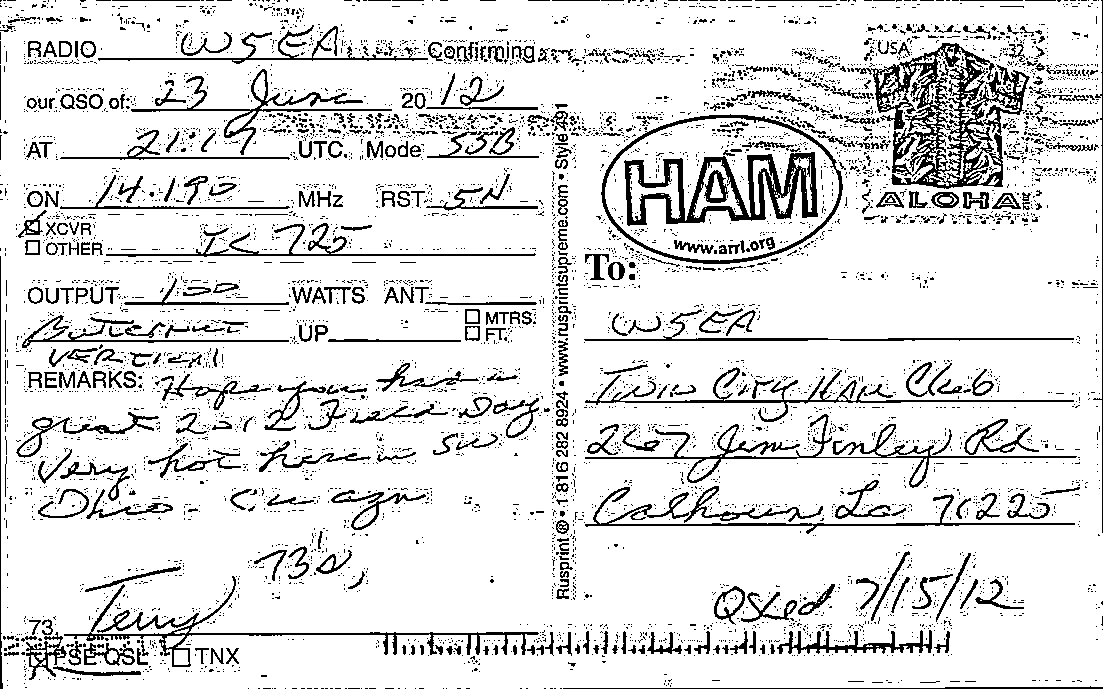 RADIO W5EA Confirming
our QSO of: 23 June 2012
AT 21:19 UTC. Mode SSB
ON 14.190 MHz RST 5N
XCVR
OTHER IC 725
OUTPUT 100 WATTS ANT
Butternut UP MTRS. FT.
VERTICAL
REMARKS: Hope you had a
great 2012 Field Day.
Very hot here in SW
Ohio - Cu agn
73's,
73, Terry
PSE QSL TNX
Rusprint ® • 1 816 282 8924 • www.rusprintsupreme.com • Style 491
USA 32
ALOHA
HAM
www.arrl.org
To:
W5EA
Twin City Ham Club
267 Jim Finley Rd.
Calhoun, La 71225
QSLed 7/15/12